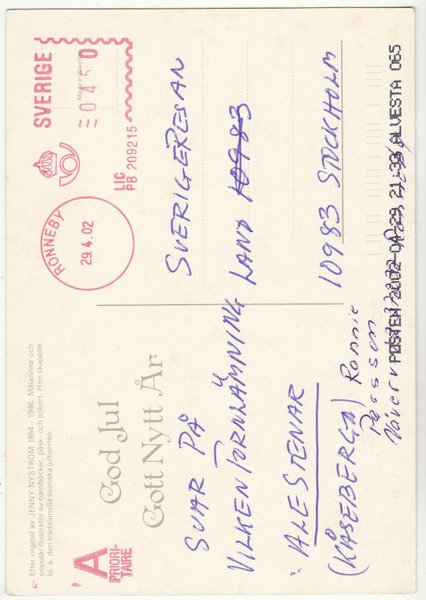 Efter original av JENNY NYSTRÖM 1854 - 1946. Målarinna och
populär illustratör av barnböcker, påsk- och julkort. Hon skapade
bl. a. den traditionella svenska jultomten.
A
PRIORI-
TAIRE
God Jul
Gott Nytt År
SVAR PÅ
VILKEN FORNLÄMNING
"ALE STENAR
(KÅSEBERGA)
Ronnie
Persson
RONNEBY
29.4.02
SVERIGE
0450
LIC
PB 209215
SVERIGERESAN
LAND 10983
10983 STOCKHOLM
POSTEN 2002-04-29 21:33 ALVESTA 065